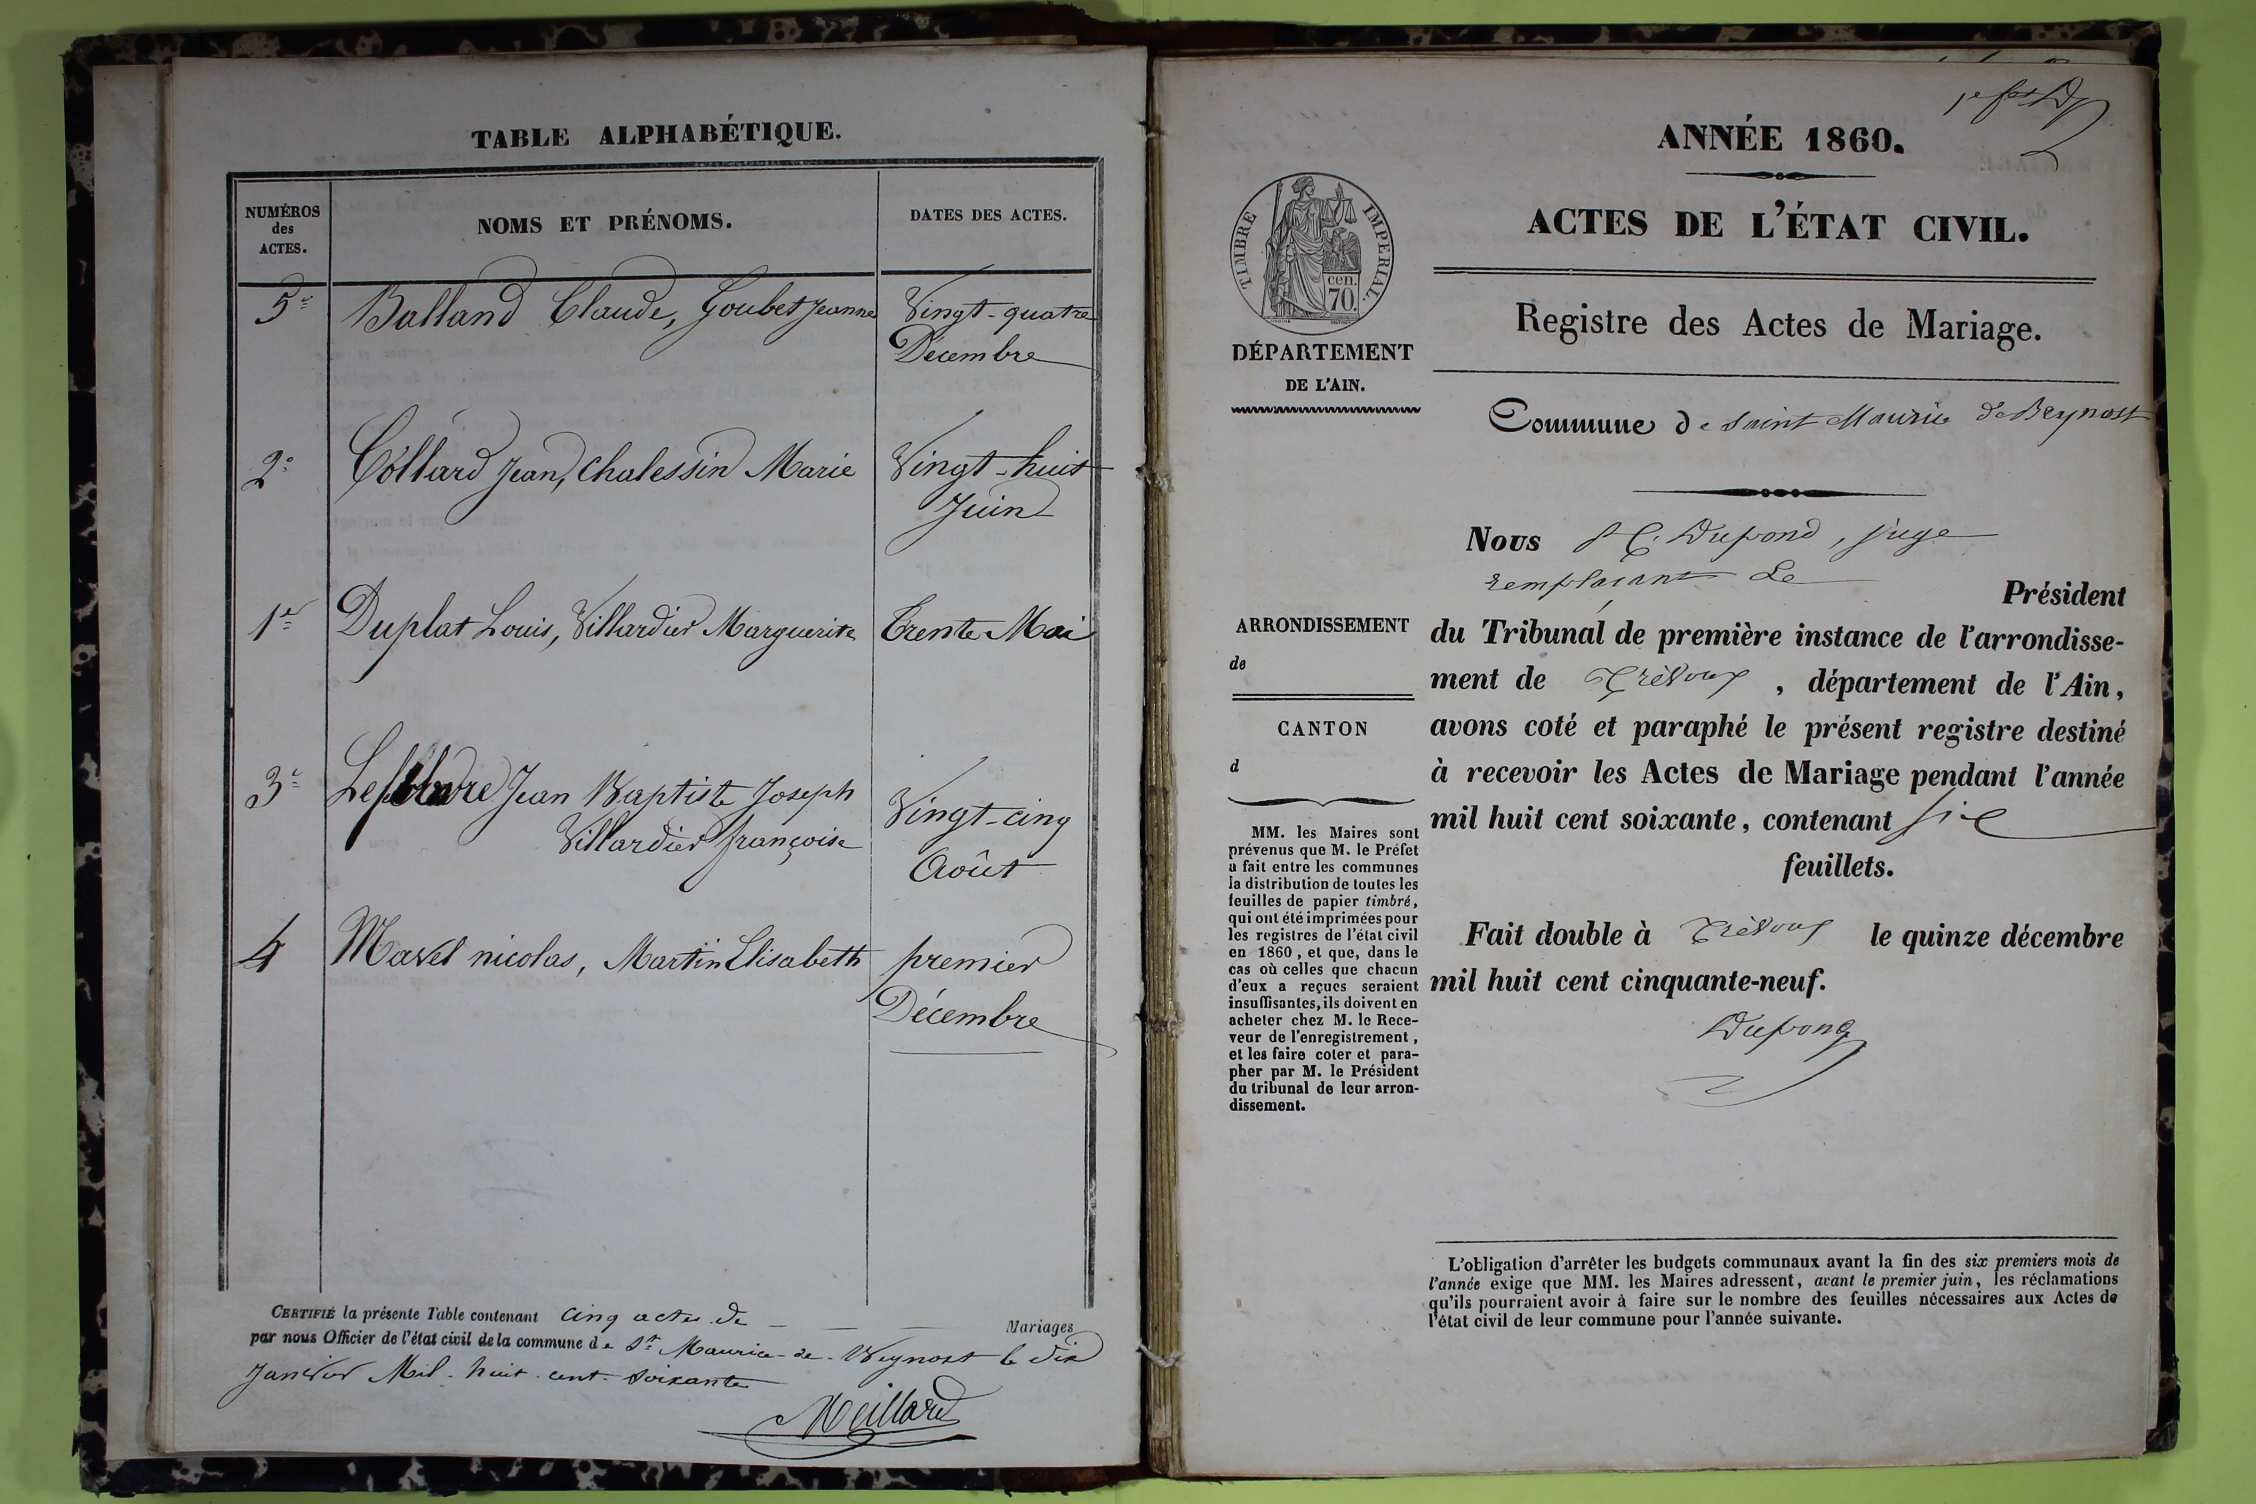 TABLE ALPHABÉTIQUE.
NUMÉROS des ACTES.
NOMS ET PRÉNOMS.
DATES DES ACTES.
5e Balland Claude, Goubet Jeanne Vingt-quatre
Décembre
2e Collard Jean, Chalessin Marie Vingt-huit
Juin
1er Duplat Louis, Villardier Marguerite Trente Mai
3e Jean Baptiste Joseph
Villardier françoise
Vingt-cinq
Août
4 nicolas, Martin Elisabeth premier
Décembre
CERTIFIÉ la présente Table contenant cinq actes de Mariages
par nous Officier de l'état civil de la commune de St Maurice-de-Beynost le dix
Janvier Mil-huit-cent-soixante
ANNÉE 1860.
ACTES DE L'ÉTAT CIVIL.
Registre des Actes de Mariage.
TIMBRE IMPÉRIAL.
70 cen.
DÉPARTEMENT
DE L'AIN.
Commune de Saint Maurice de Beynost
ARRONDISSEMENT
de
CANTON
d
MM. les Maires sont
prévenus que M. le Préfet
a fait entre les communes
la distribution de toutes les
feuilles de papier timbré,
qui ont été imprimées pour
les registres de l'état civil
en 1860, et que, dans le
cas où celles que chacun
d'eux a reçues seraient
insuffisantes, ils doivent en
acheter chez M. le Rece-
veur de l'enregistrement,
et les faire coter et para-
pher par M. le Président
du tribunal de leur arron-
dissement.
Nous Dupond, juge
remplaçant Le Président
du Tribunal de première instance de l'arrondisse-
ment de Trévoux, département de l'Ain,
avons coté et paraphé le présent registre destiné
à recevoir les Actes de Mariage pendant l'année
mil huit cent soixante, contenant six
feuillets.
Fait double à Trévoux le quinze décembre
mil huit cent cinquante-neuf.
Dupond
L'obligation d'arrêter les budgets communaux avant la fin des six premiers mois de
l'année exige que MM. les Maires adressent, avant le premier juin, les réclamations
qu'ils pourraient avoir à faire sur le nombre des feuilles nécessaires aux Actes de
l'état civil de leur commune pour l'année suivante.